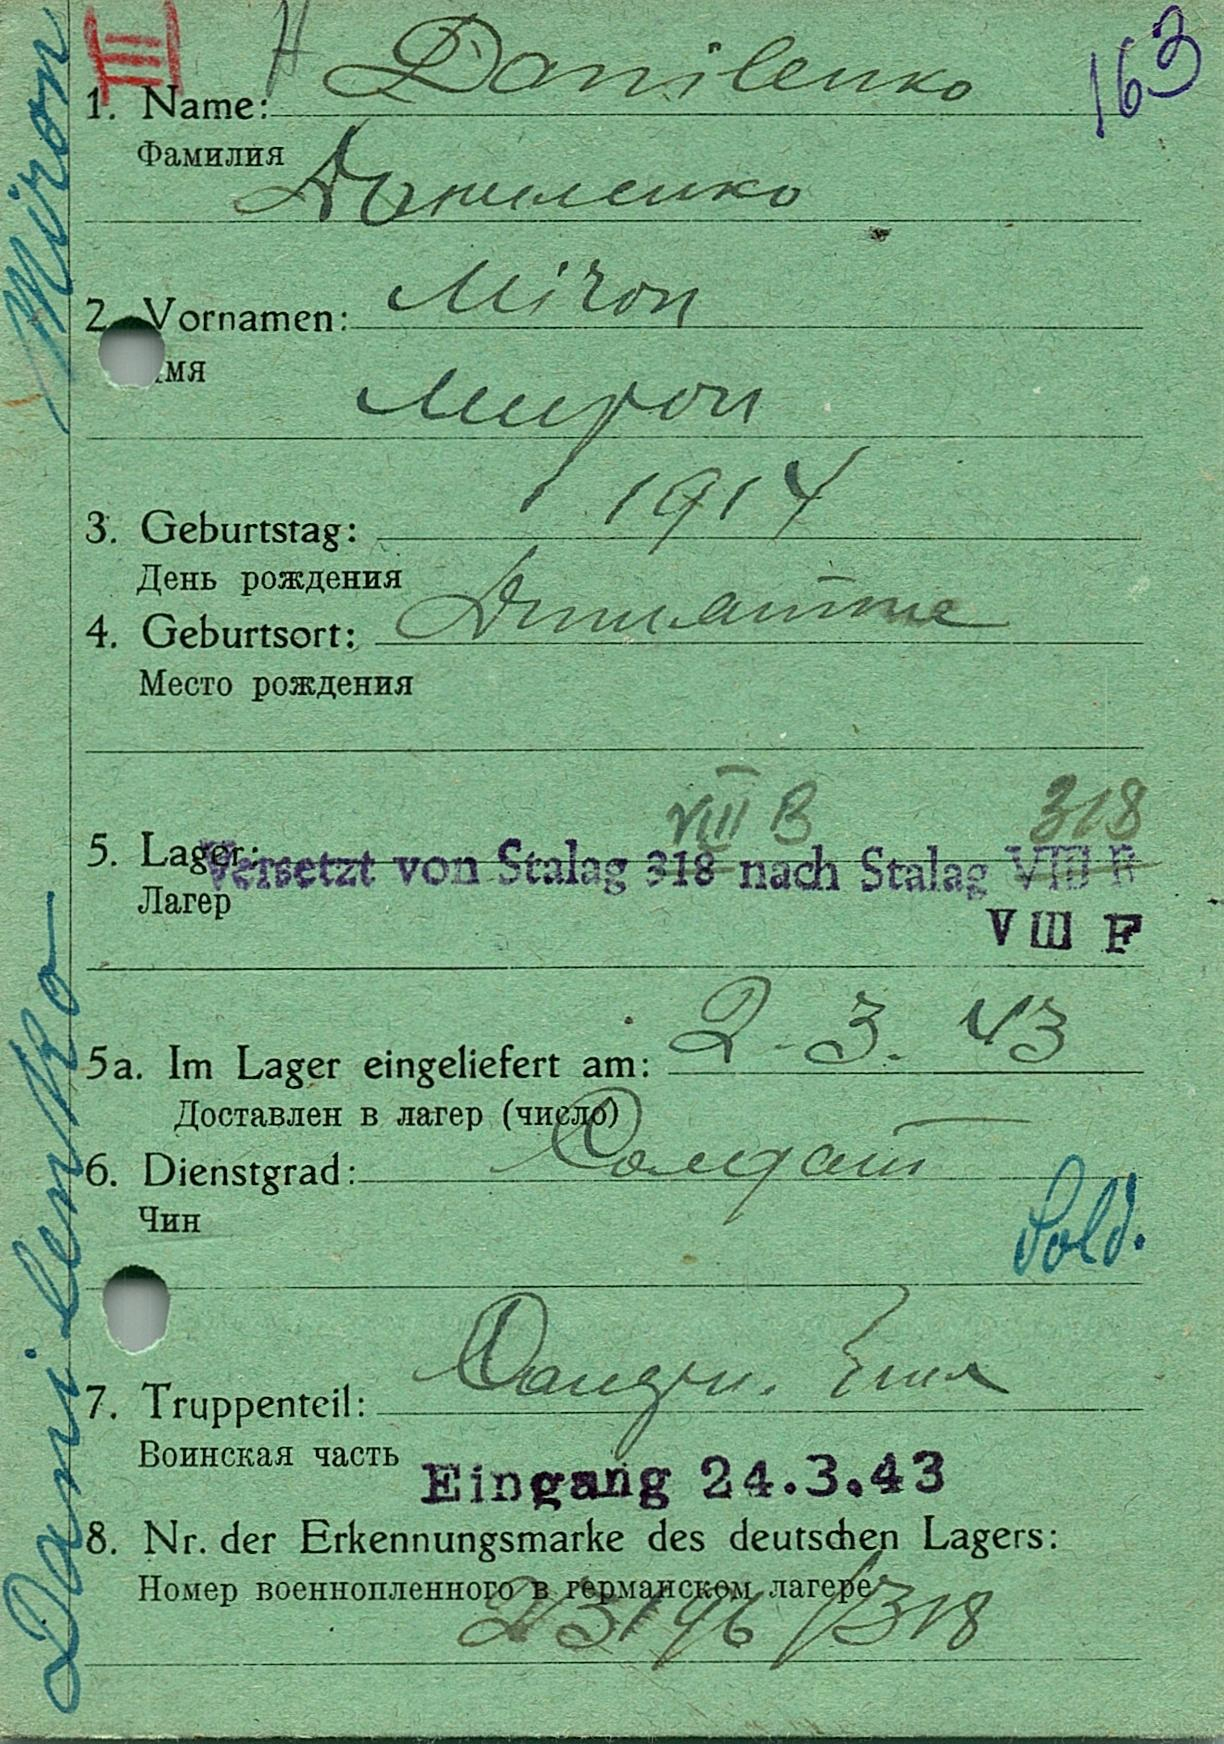 III
H
163
1. Name: Danilenko
Фамилия
Даниленко
2. Vornamen: Miron
Имя
Мирон
3. Geburtstag: 1914
День рождения
4. Geburtsort:
Место рождения
VIII B 318
5. Lager:
Versetzt von Stalag 318 nach Stalag VIII B
Лагер
VIII F
5a. Im Lager eingeliefert am: 2.3.43
Доставлен в лагер (число)
6. Dienstgrad: Солдат
Чин
Sold.
7. Truppenteil:
Воинская часть
Eingang 24.3.43
8. Nr. der Erkennungsmarke des deutschen Lagers:
Номер военнопленного в германском лагере
/318
Danilenko Miron